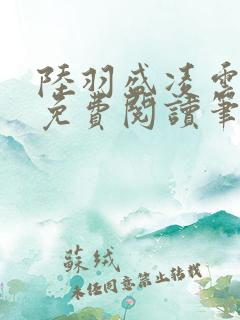 陸羽盛凌雲
免費閱讀筆
蘇絨
未經同意禁止轉載